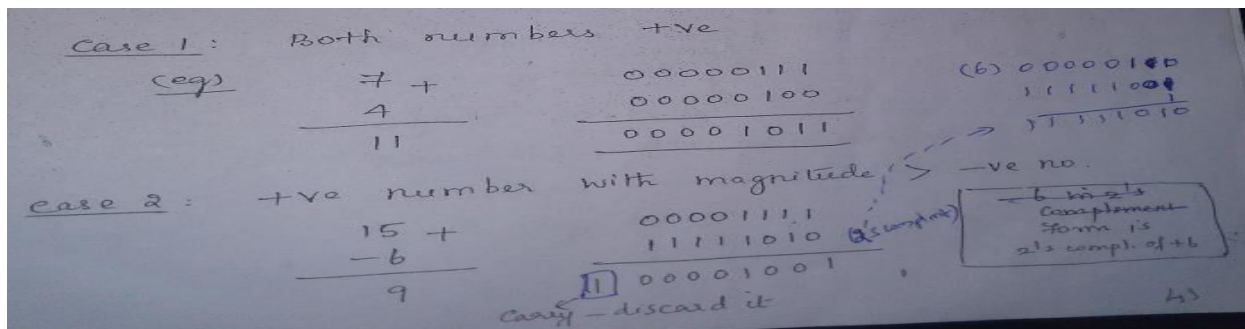 Case 1 : Both numbers +ve
(eg) 7 + 00000111 (6) 00000110
4 00000100 11111001
11 00001011 1
11111010
case 2 : +ve number with magnitude > -ve no.
15 + 00001111
-6 11111010 (2's complmt)
9 1 00001001
carry - discard it
-6 in 2's
Complement
form is
2's compl. of +6